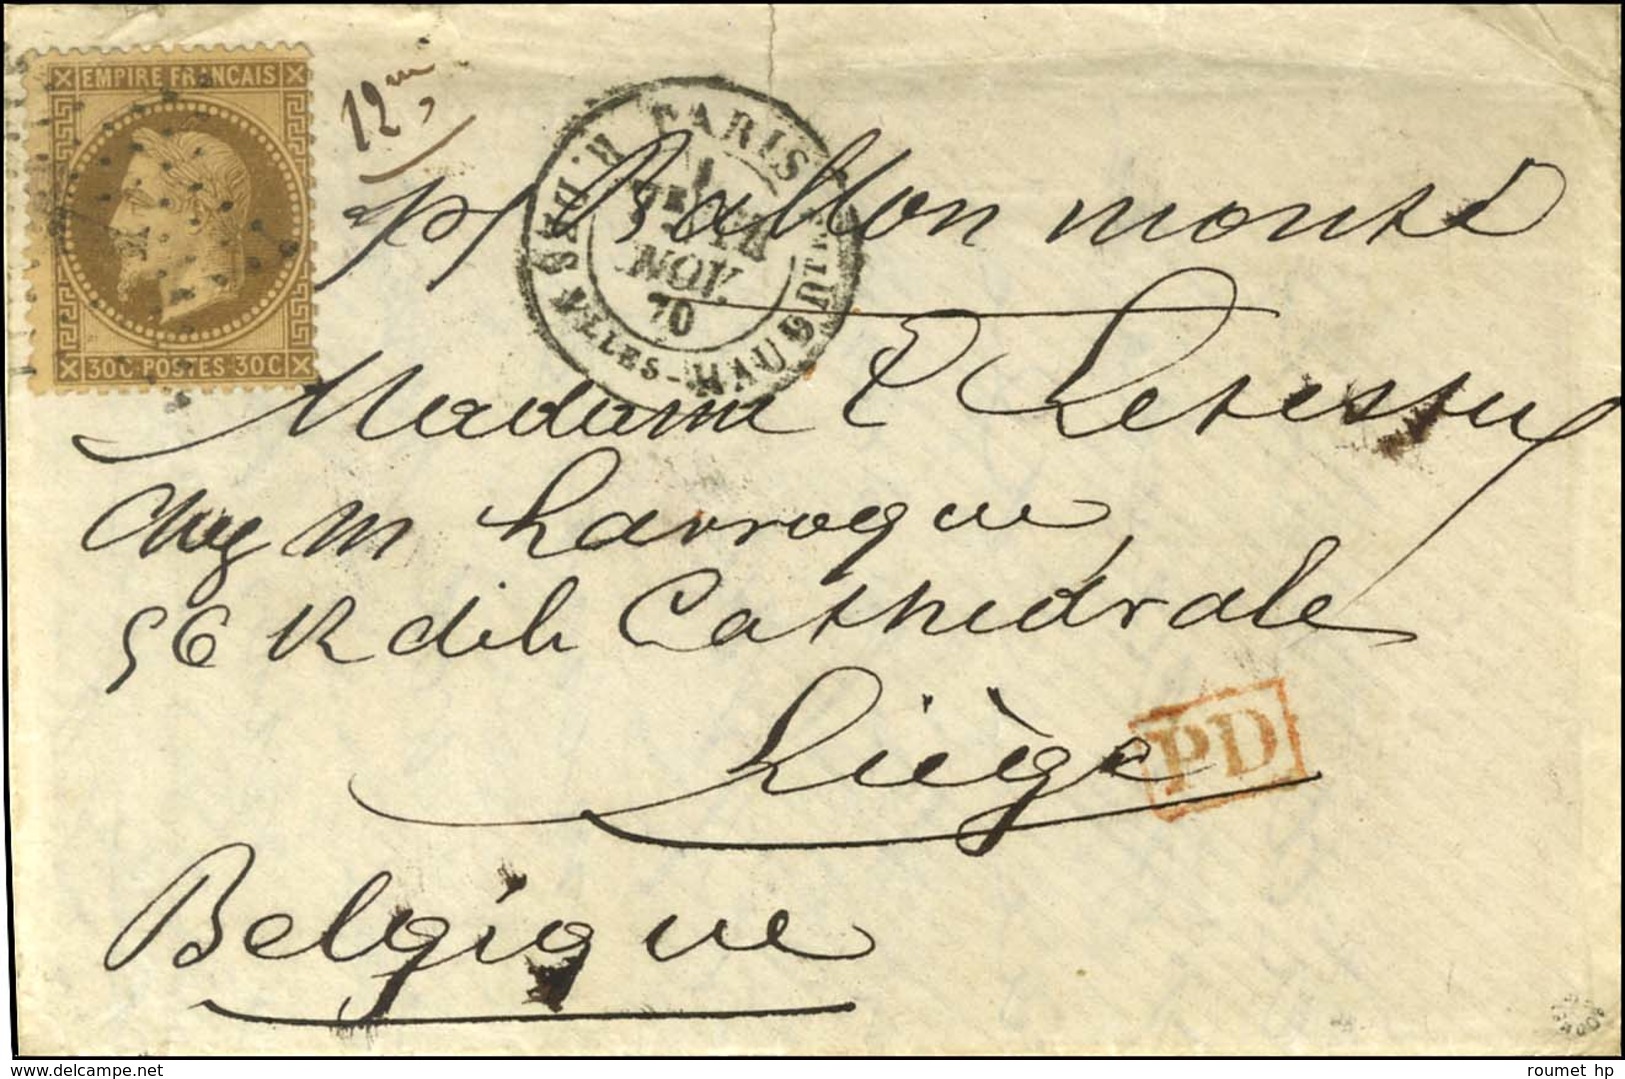 EMPIRE FRANÇAIS
30C·POSTES·30C
12
PARIS
R. DES VLLES-HAUDTTES
1
NOV.
70
pr Ballon monté
Madame E Letestu
Chez M Larroque
56 R de la Cathédrale
Liège
PD
Belgique
www.delcampe.net
roumet hp